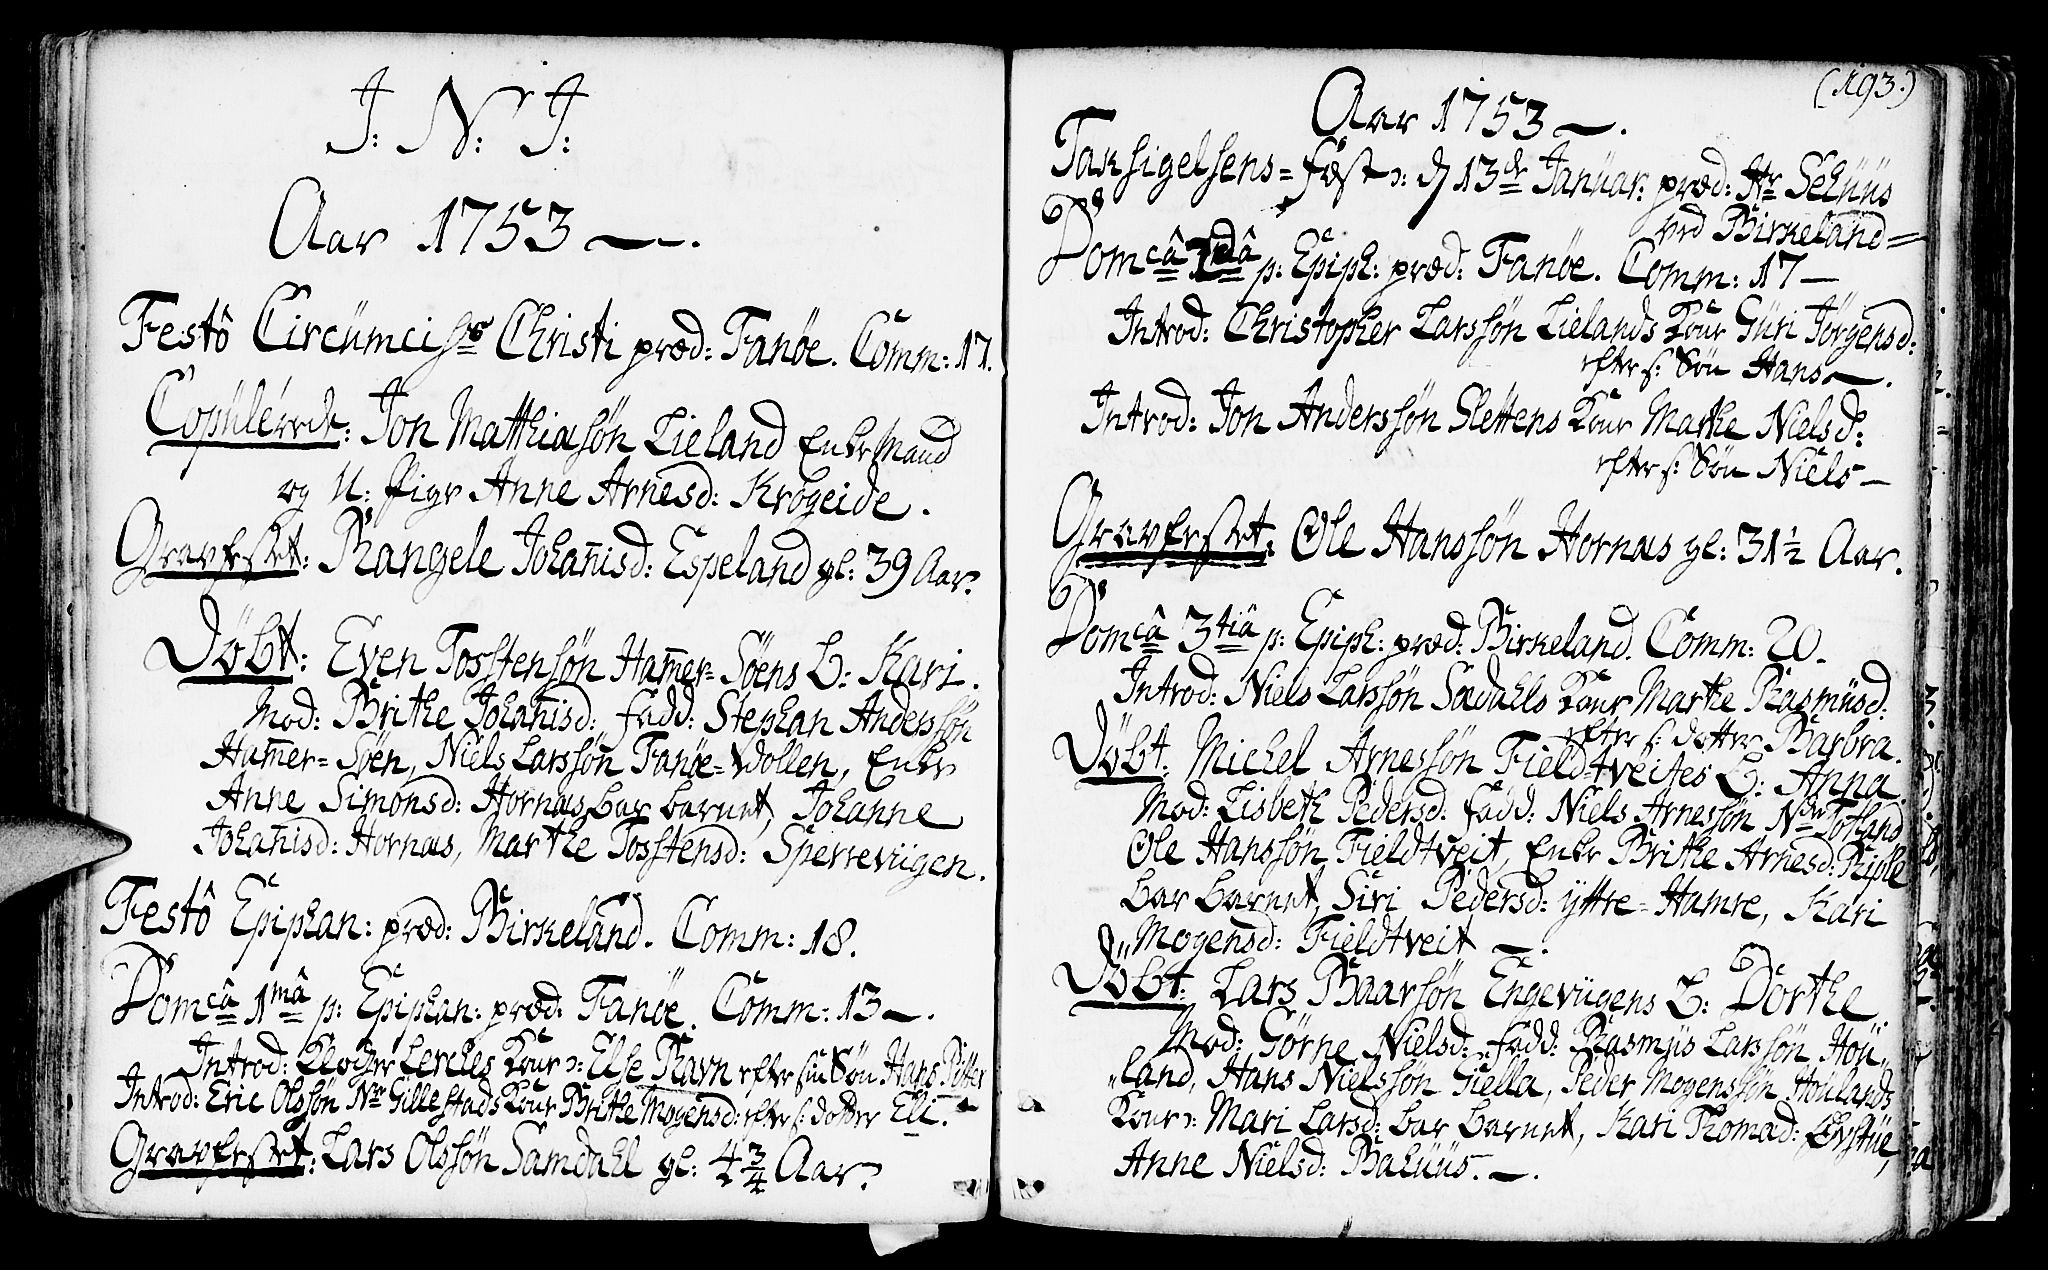 J: N: J:
Aar 1753 —.
Festô Circümcis: Christi præd: Fanöe. Comm: 17.
Copülérede: Jon Matthiæsön Lieland Enke Mand
og U: Pige Anne Arnesd: Krogeide.
Gravfæstet: Rangele Johañisd: Espeland gl: 39 Aar.
Döbt: Even Tosstensön Ham̃er-Söens B: Kari.
Mod: Brithe Johañisd: fadd: Stephan Anderssön
Ham̃er-Söen, Niels Larssön Fanöe-Vollen, Enke
Anne Simonsd: Hornæs bar barnet, Johanne
Johañisd: Hornæs, Marthe Tosstensd: Sperreviigen.
Festô Epiphan: præd: Birkeland. Comm: 18.
Domcâ 1mâ p: Epiphan: præd: Fanöe. Comm: 13 —.
Introd: Klocker Lerches Kone: Else Ravn efter sin Sön Hans Pitter
Introd: Eric Olssön Nre Gillestads Kone Brithe Mogensd: efter s: dotter Eli.
Gravfæstet: Lars Olssön Samdahl gl: 4 3/4 Aar.
(193.)
Aar 1753 —.
Taksigelsens= fæst: d 13de Januar: præd: Hr Schüüs
ved Birkeland=
Domcâ 2dâ p: Epiph: præd: Fanöe. Comm: 17 —
Introd: Christopher Larssön Lielands Kone Güri Jörgensd:
efter s: Sön Hans —.
Introd: Jon Anderssön Slettens Kone Marthe Nielsd:
efter s: Sön Niels —
Gravfæstet: Ole Hanssön Hornæs gl: 31 1/2 Aar.
Domcâ 3tiâ p: Epiph: præd: Birkeland. Comm: 20.
Introd: Niels Larssön Sædahls Kone Marthe Rasmüsd:
efter s: dotter Barbra.
Döbt: Michel Arnessön Fieldtveites B: Anna
Mod: Lisbeth Pedersd: fadd: Niels Arnessön Ndre Totland
Ole Hanssön Fieldtveit, Enke Brithe Arnesd: Riple
bar barnet, Siri Pedersd: yttre-Hamre, Kari
Mogensd: Fieldtveit —.
Döbt: Lars Baarsön Engeviigens B: Dorthe
Mod: Görne Nielsd: fadd: Rasmüs Larssön Hou„
„land, Hans Nielssön Giella, Peder Mogenssön Houlands
Kone: Mari Larsd: bar barnet, Kari Thomad: Övstüe,
Anne Nielsd: Bahüüs. —.